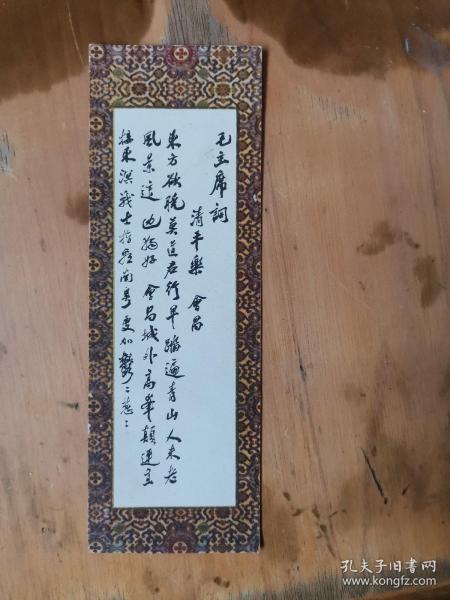 毛主席詞
清平樂 會昌
東方欲曉莫道君行早踏遍青山人未老
風景這边獨好 會昌城外高峯顛連直
接東溟战士指看南粤更加鬱二葱二
孔夫子旧书网
www.kongfz.com